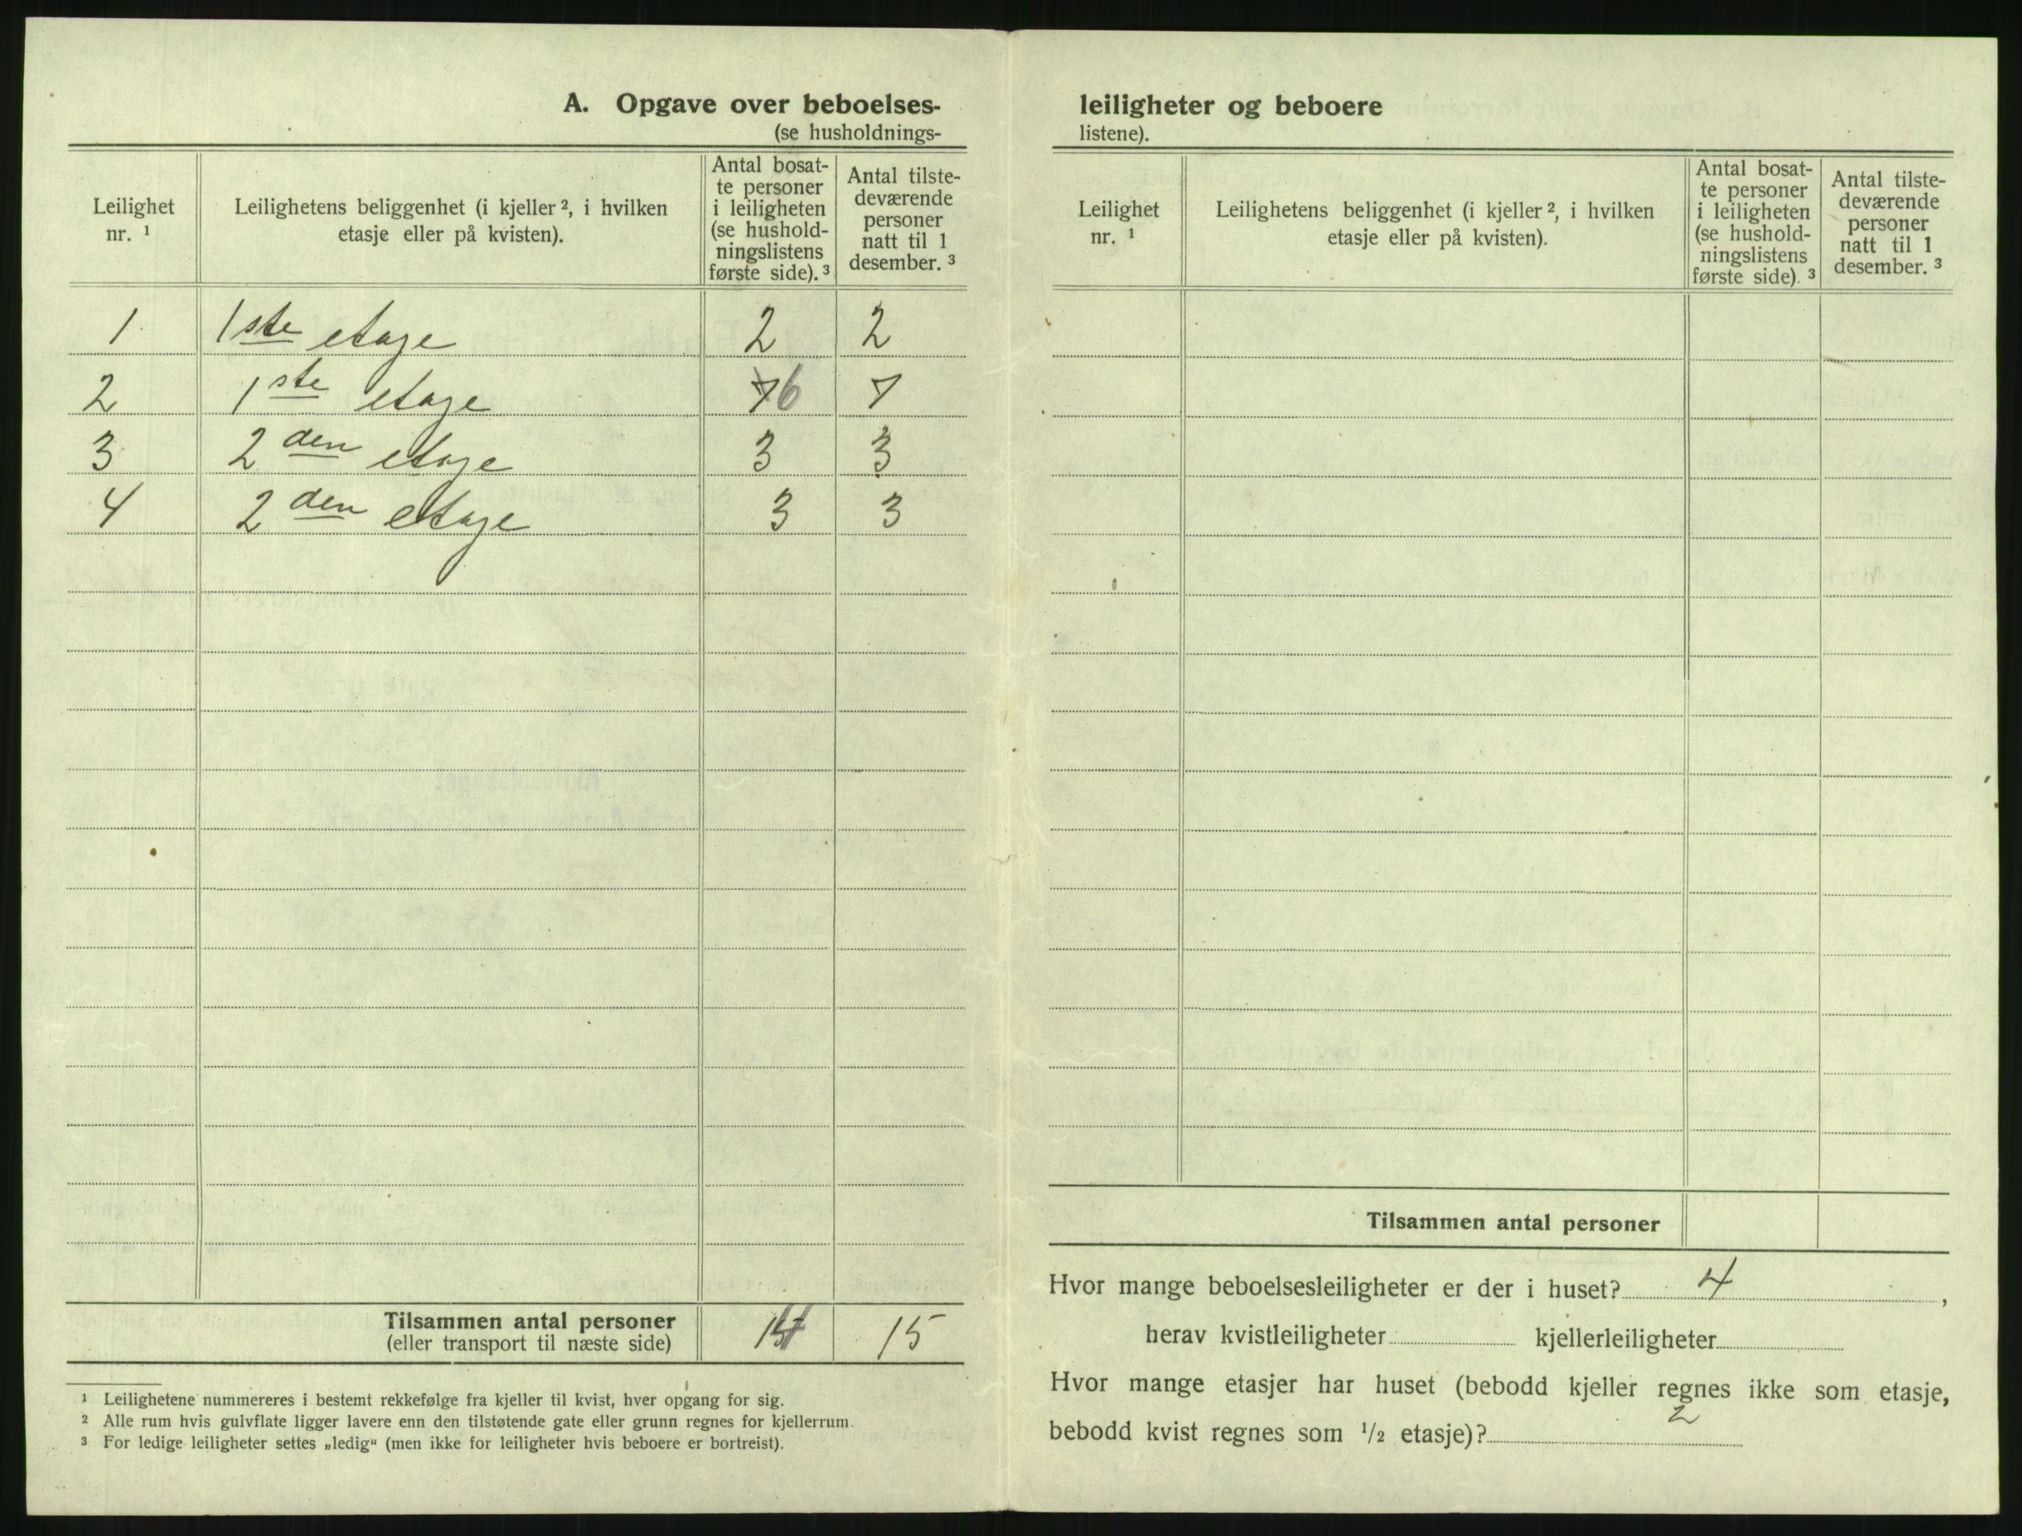 A. Opgave over beboelses-
(se husholdnings-
Leilighet nr. ¹
Leilighetens beliggenhet (i kjeller ², i hvilken etasje eller på kvisten).
Antal bosat-
te personer
i leiligheten
(se hushold-
ningslistens
første side). ³
Antal tilste-
deværende
personer
natt til 1
desember. ³
1 1ste etage 2 2
2 1ste etage 7 6 7
3 2den etage 3 3
4 2den etage 3 3
Tilsammen antal personer
(eller transport til næste side)
14 15
¹ Leilighetene nummereres i bestemt rekkefølge fra kjeller til kvist, hver opgang for sig.
² Alle rum hvis gulvflate ligger lavere enn den tilstøtende gate eller grunn regnes for kjellerrum.
³ For ledige leiligheter settes „ledig“ (men ikke for leiligheter hvis beboere er bortreist).
leiligheter og beboere
listene).
Leilighet nr. ¹
Leilighetens beliggenhet (i kjeller ², i hvilken etasje eller på kvisten).
Antal bosat-
te personer
i leiligheten
(se hushold-
ningslistens
første side). ³
Antal tilste-
deværende
personer
natt til 1
desember. ³
Tilsammen antal personer
Hvor mange beboelsesleiligheter er der i huset? 4 ,
herav kvistleiligheter kjellerleiligheter
Hvor mange etasjer har huset (bebodd kjeller regnes ikke som etasje,
bebodd kvist regnes som ½ etasje)? 2